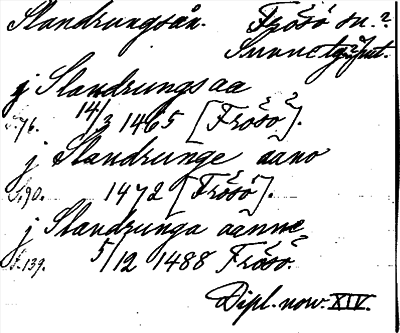 Slandrungsån. Frösö sn.?
Sunne tg. Jmt.
j Slandrungs aa
s. 76. 14/3 1465 [Frösö].
j Slandrunge aano
s. 90. 1472 [Frösö].
j Slandrunga aanne
s. 139. 5/12 1488 Frösö.
Dipl. norv. XIV.